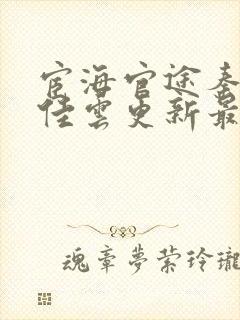 宦海官途秦
佳雲更新最
魂牽夢縈玲瓏